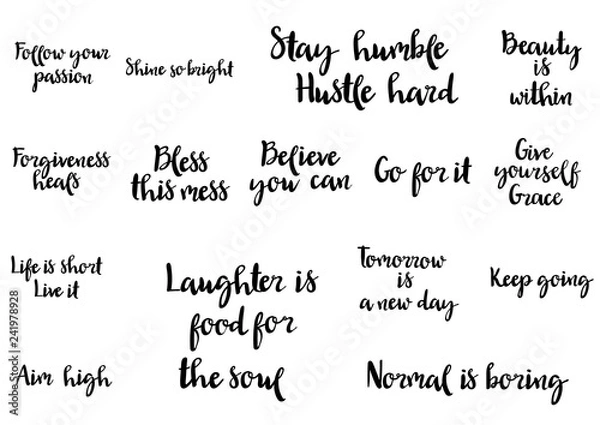 Follow your
passion
Shine so bright
Stay humble
Hustle hard
Beauty
is
within
Forgiveness
heals
Bless
this mess
Believe
you can
Go for it
Give
yourself
Grace
Life is short
Live it
Laughter is
food for
the soul
Tomorrow
is
a new day
Keep going
Aim high
Normal is boring
Adobe Stock | #241978928
Adobe Stock